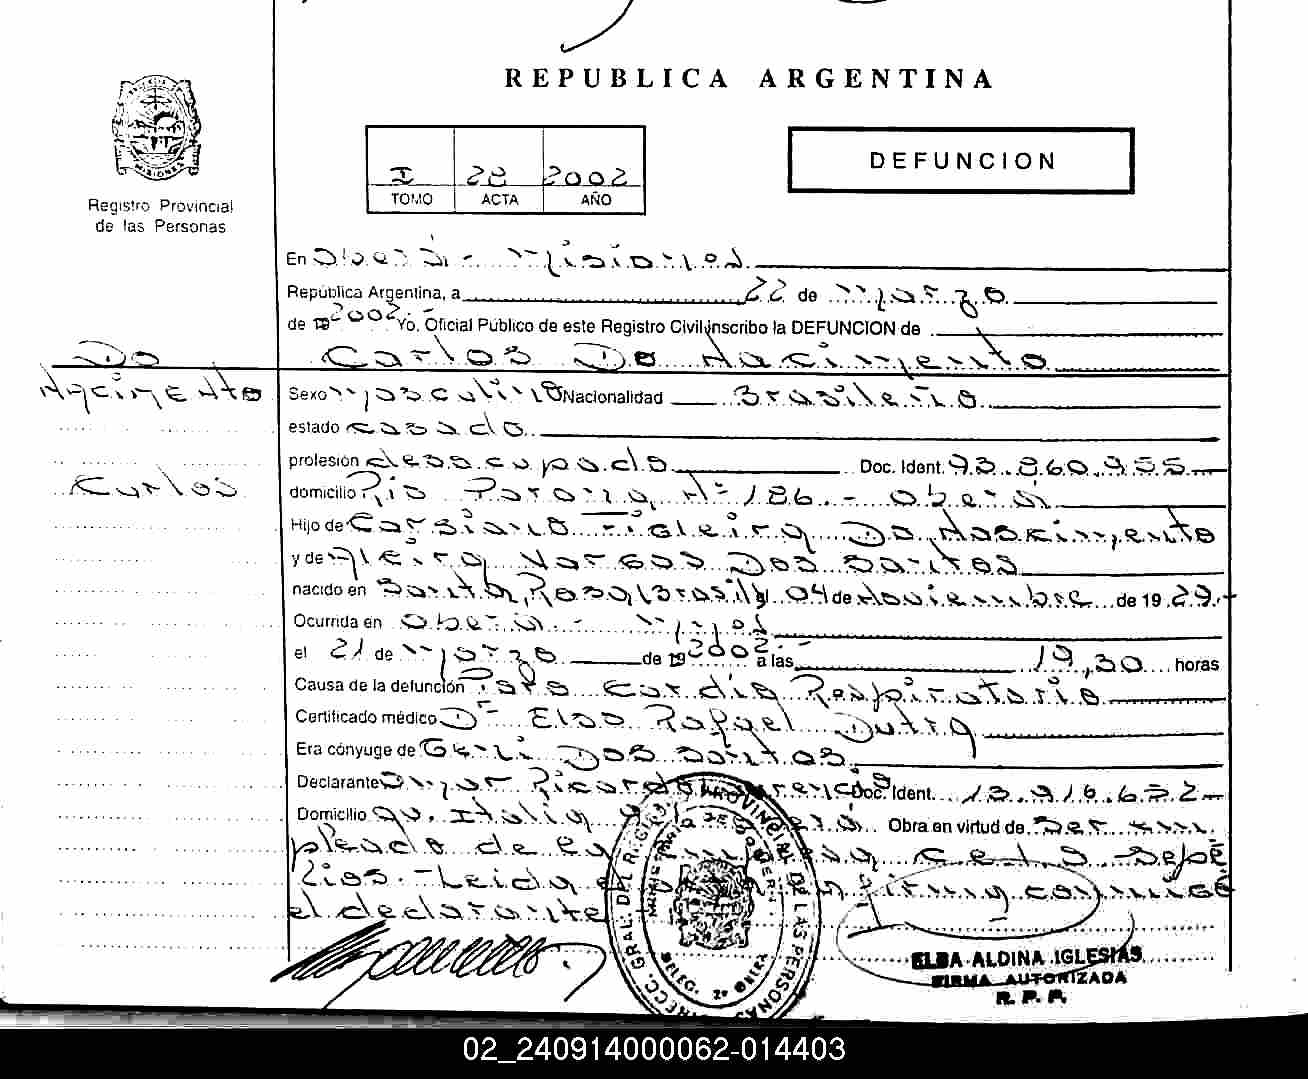 REPUBLICA ARGENTINA
MISIONES
Registro Provincial
de las Personas
I 28 2002
TOMO ACTA AÑO
DEFUNCION
En Oberá - Misiones
República Argentina, a 22 de Marzo
de 19 2002.- Yo, Oficial Público de este Registro Civil inscribo la DEFUNCION de
Do
Nacimento
Carlos
Carlos Do Nacimento
Sexo Masculino Nacionalidad Brasileño
estado casado
profesión desocupado Doc. Ident. 93.860.955
domicilio Río Paraná Nº 186.- Oberá
Hijo de Do Nascimento
y de Vargas Dos Santos
nacido en Santa Rosa (Brasil) el 04 de Noviembre de 19 29.-
Ocurrida en Oberá - Mnes
el 21 de Marzo de 19 2002 a las 19,30 horas
Causa de la defunción Paro Cardio Respiratorio
Certificado médico Dr Elso Rafael Dutra
Era cónyuge de Dos Santos
Declarante Omar Ricardo Doc. Ident. 13.916.652
Domicilio Av. Italia Obra en virtud de Ser em
pleado de
Rios.- Leida firma conmigo
el declarante
DIRECC. GRAL. DEL REGISTRO PROVINCIAL DE LAS PERSONAS
MINISTERIO DE GOBIERNO
DELEG. 2ª OBERA
ELBA ALDINA IGLESIAS
FIRMA AUTORIZADA
R. P. P.
02_240914000062-014403